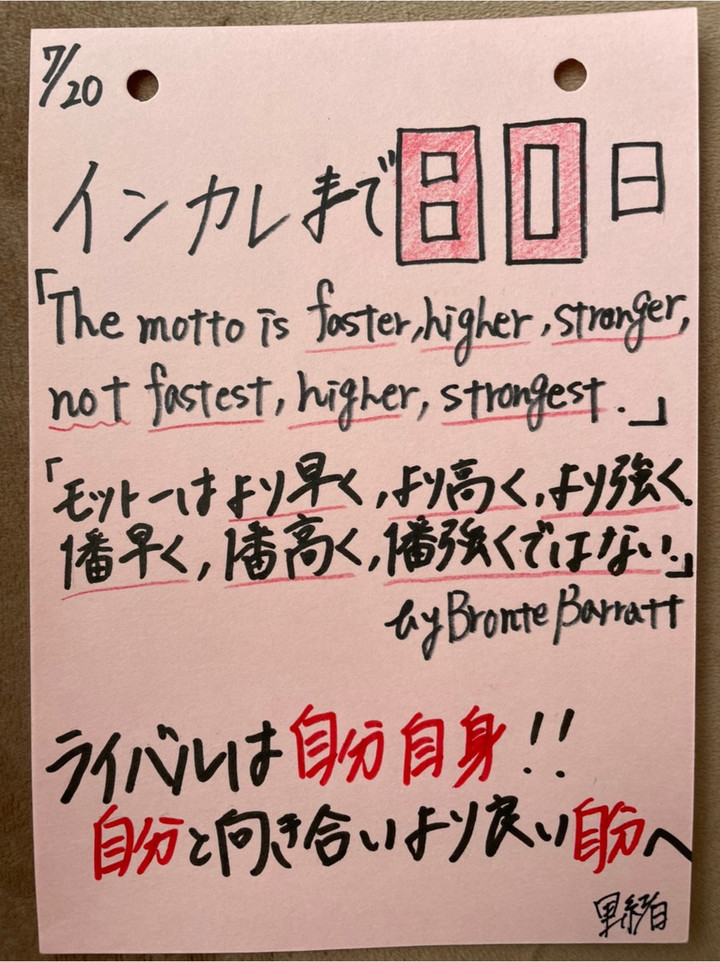 7/20
インカレまで80日
「The motto is faster, higher, stronger,
not fastest, higher, strongest.」
「モットーはより早く,より高く,より強く.
1番早く,1番高く,1番強くではない.」
by Bronte Barratt
ライバルは自分自身!!
自分と向き合いより良い自分へ